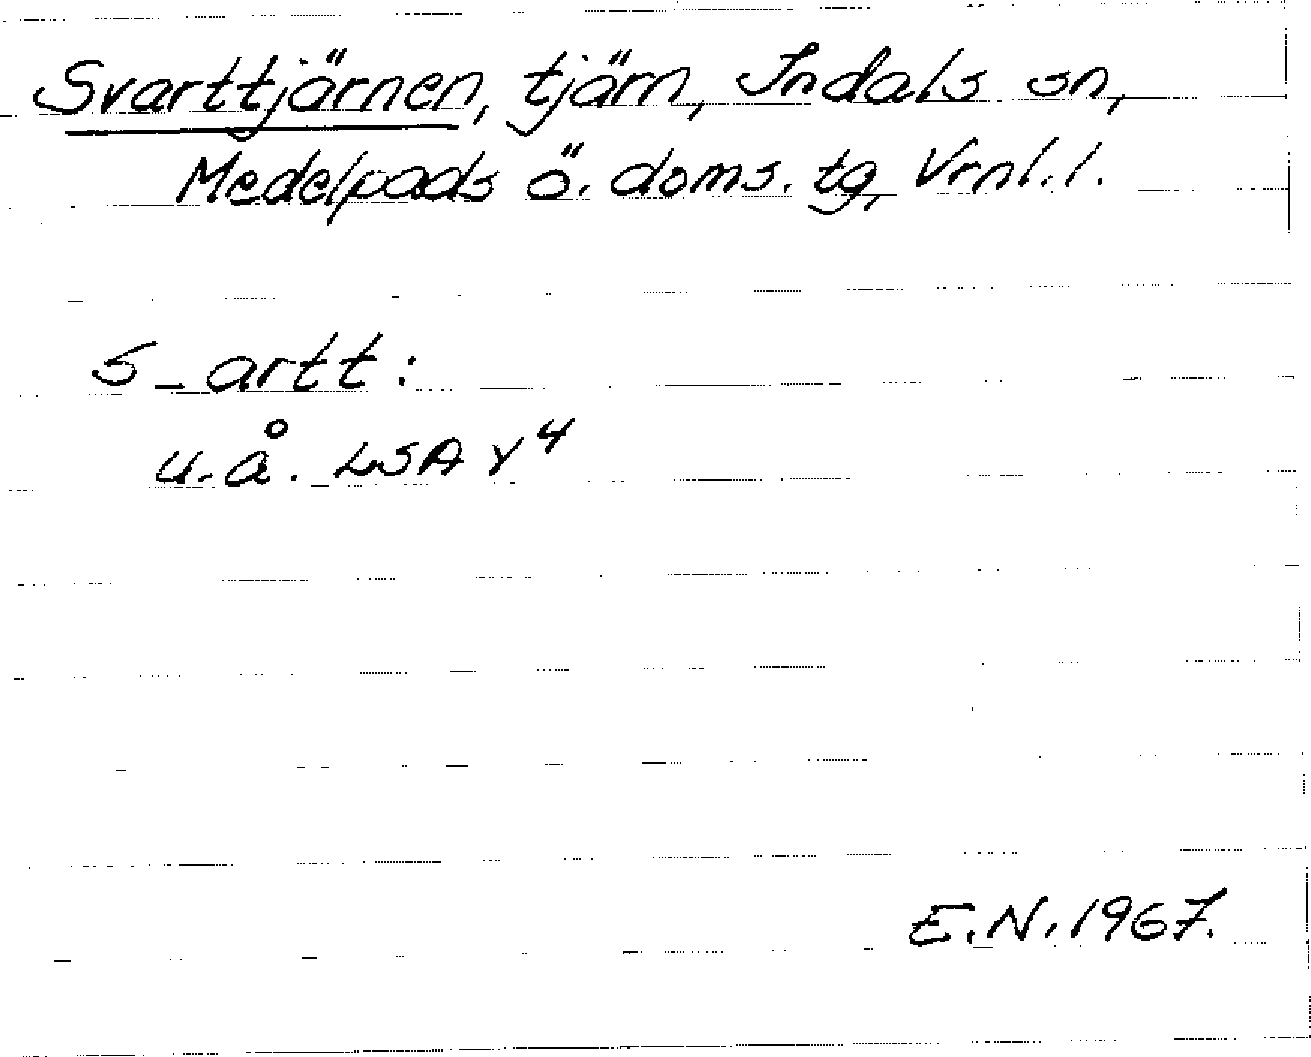 Svarttjärnen, tjärn, Indals sn,
Medelpads ö. doms. tg, Vrnl. l.
S_artt:
u.å. LSA Y4
E.N. 1967.